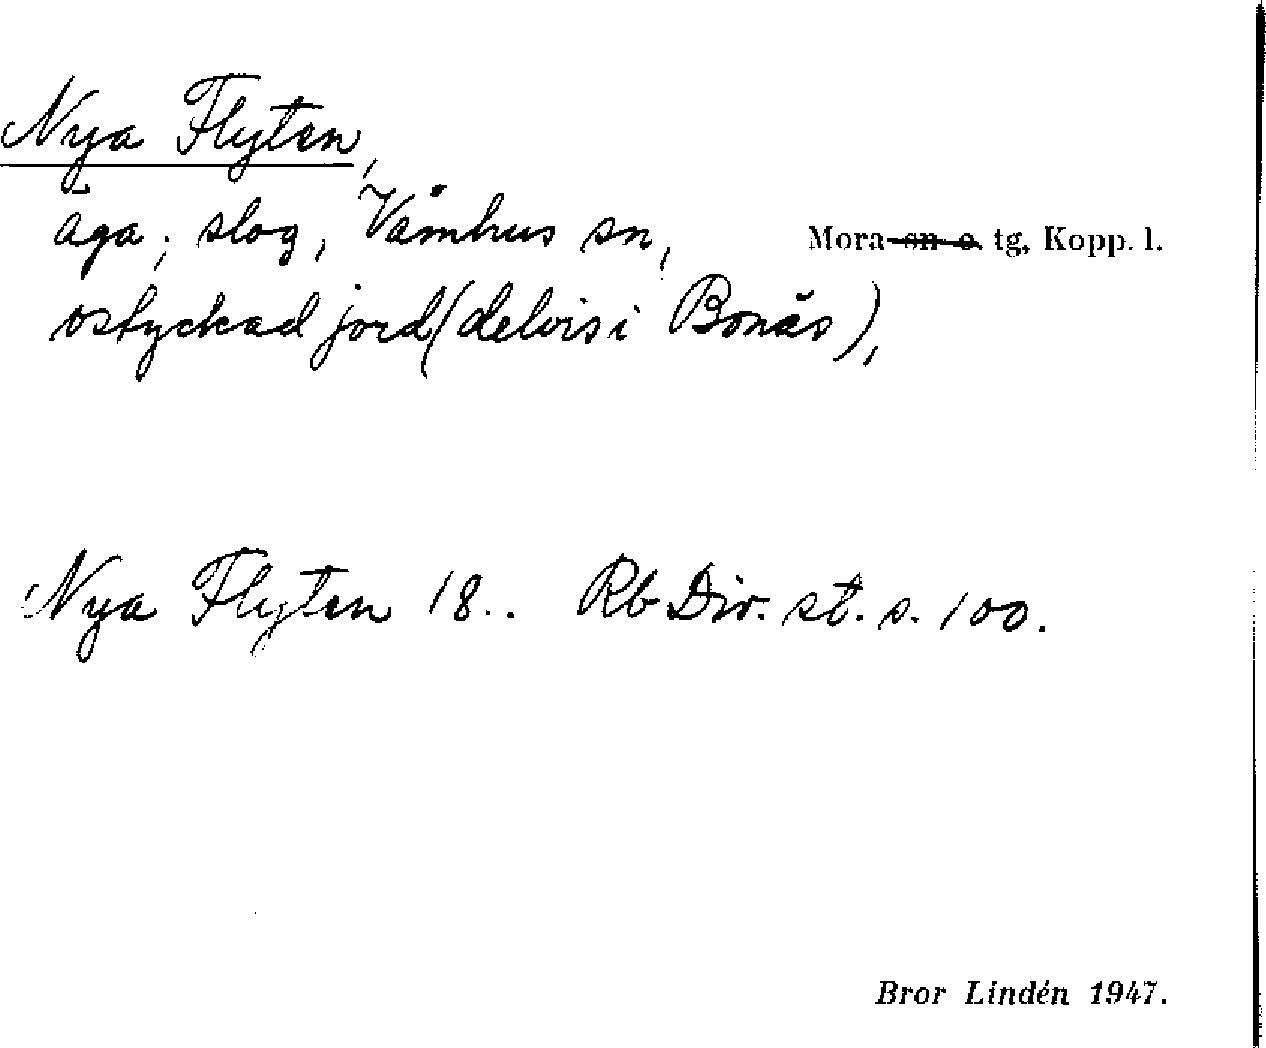 Nya Flyten,
äga; slog, Våmhus sn, Mora sn o. tg, Kopp. l.
ostyckad jord (delvis i Bonäs),
Nya Flyten 18.. Rb Div. st. s. 100.
Bror Lindén 1947.